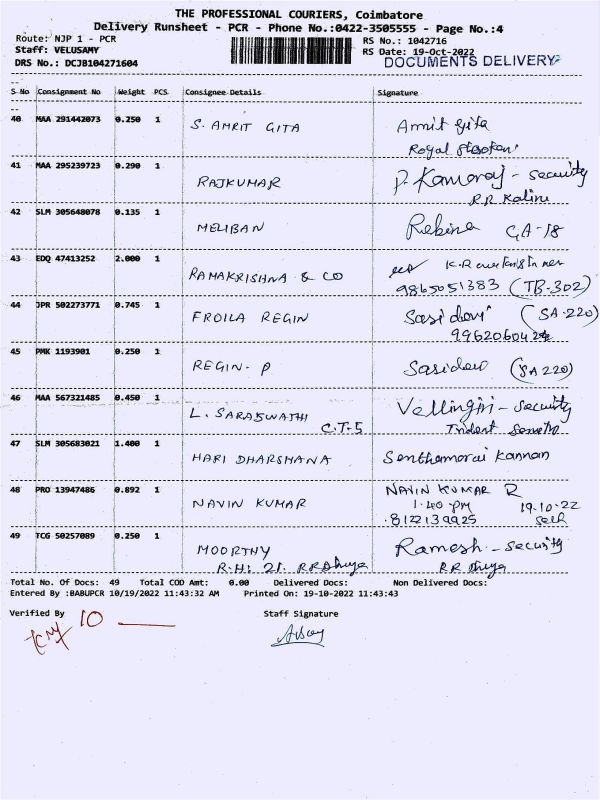 THE PROFESSIONAL COURIERS, Coimbatore
Delivery Runsheet - PCR - Phone No.:0422-3505555 - Page No.:4
Route: NJP 1 - PCR
RS No.: 1042716
Staff: VELUSAMY
RS Date: 19-Oct-2022
DRS No.: DCJB104271604
DOCUMENTS DELIVERY
S No Consignment No Weight PCS Consignee Details Signature
40 MAA 291442073 0.250 1 S. AMRIT GITA Amrit Gita
Royal
41 MAA 295239723 0.290 1 RAJKUMAR P. Kamaraj - Security
RR Kalini
42 SLM 305648078 0.135 1 MELIBAN Rebina GA-18
43 EDQ 47413252 2.000 1 RAMAKRISHNA & CO K.R
9865051383 (TB-302)
44 JPR 502273771 0.745 1 FROILA REGIN Sasidevi (SA-220)
99620604
45 PMK 1193901 0.250 1 REGIN. P Sasidevi (SA 220)
46 MAA 567321485 0.450 1 L. SARASWATHI Vellingiri - Security
C.T-5 Trident
47 SLM 305683021 1.400 1 HARI DHARSHANA Senthamarai Kannan
48 PRO 13947486 0.892 1 NAVIN KUMAR NAVIN KUMAR R
1.40 PM 19.10.22
8122139925 Self
49 TCG 50257089 0.250 1 MOORTHY Ramesh - Security
R.H: 21. RR Dhuya RR Dhuya
Total No. Of Docs: 49 Total COD Amt: 0.00 Delivered Docs: Non Delivered Docs:
Entered By :BABUPCR 10/19/2022 11:43:32 AM Printed On: 19-10-2022 11:43:33
Verified By Staff Signature
10